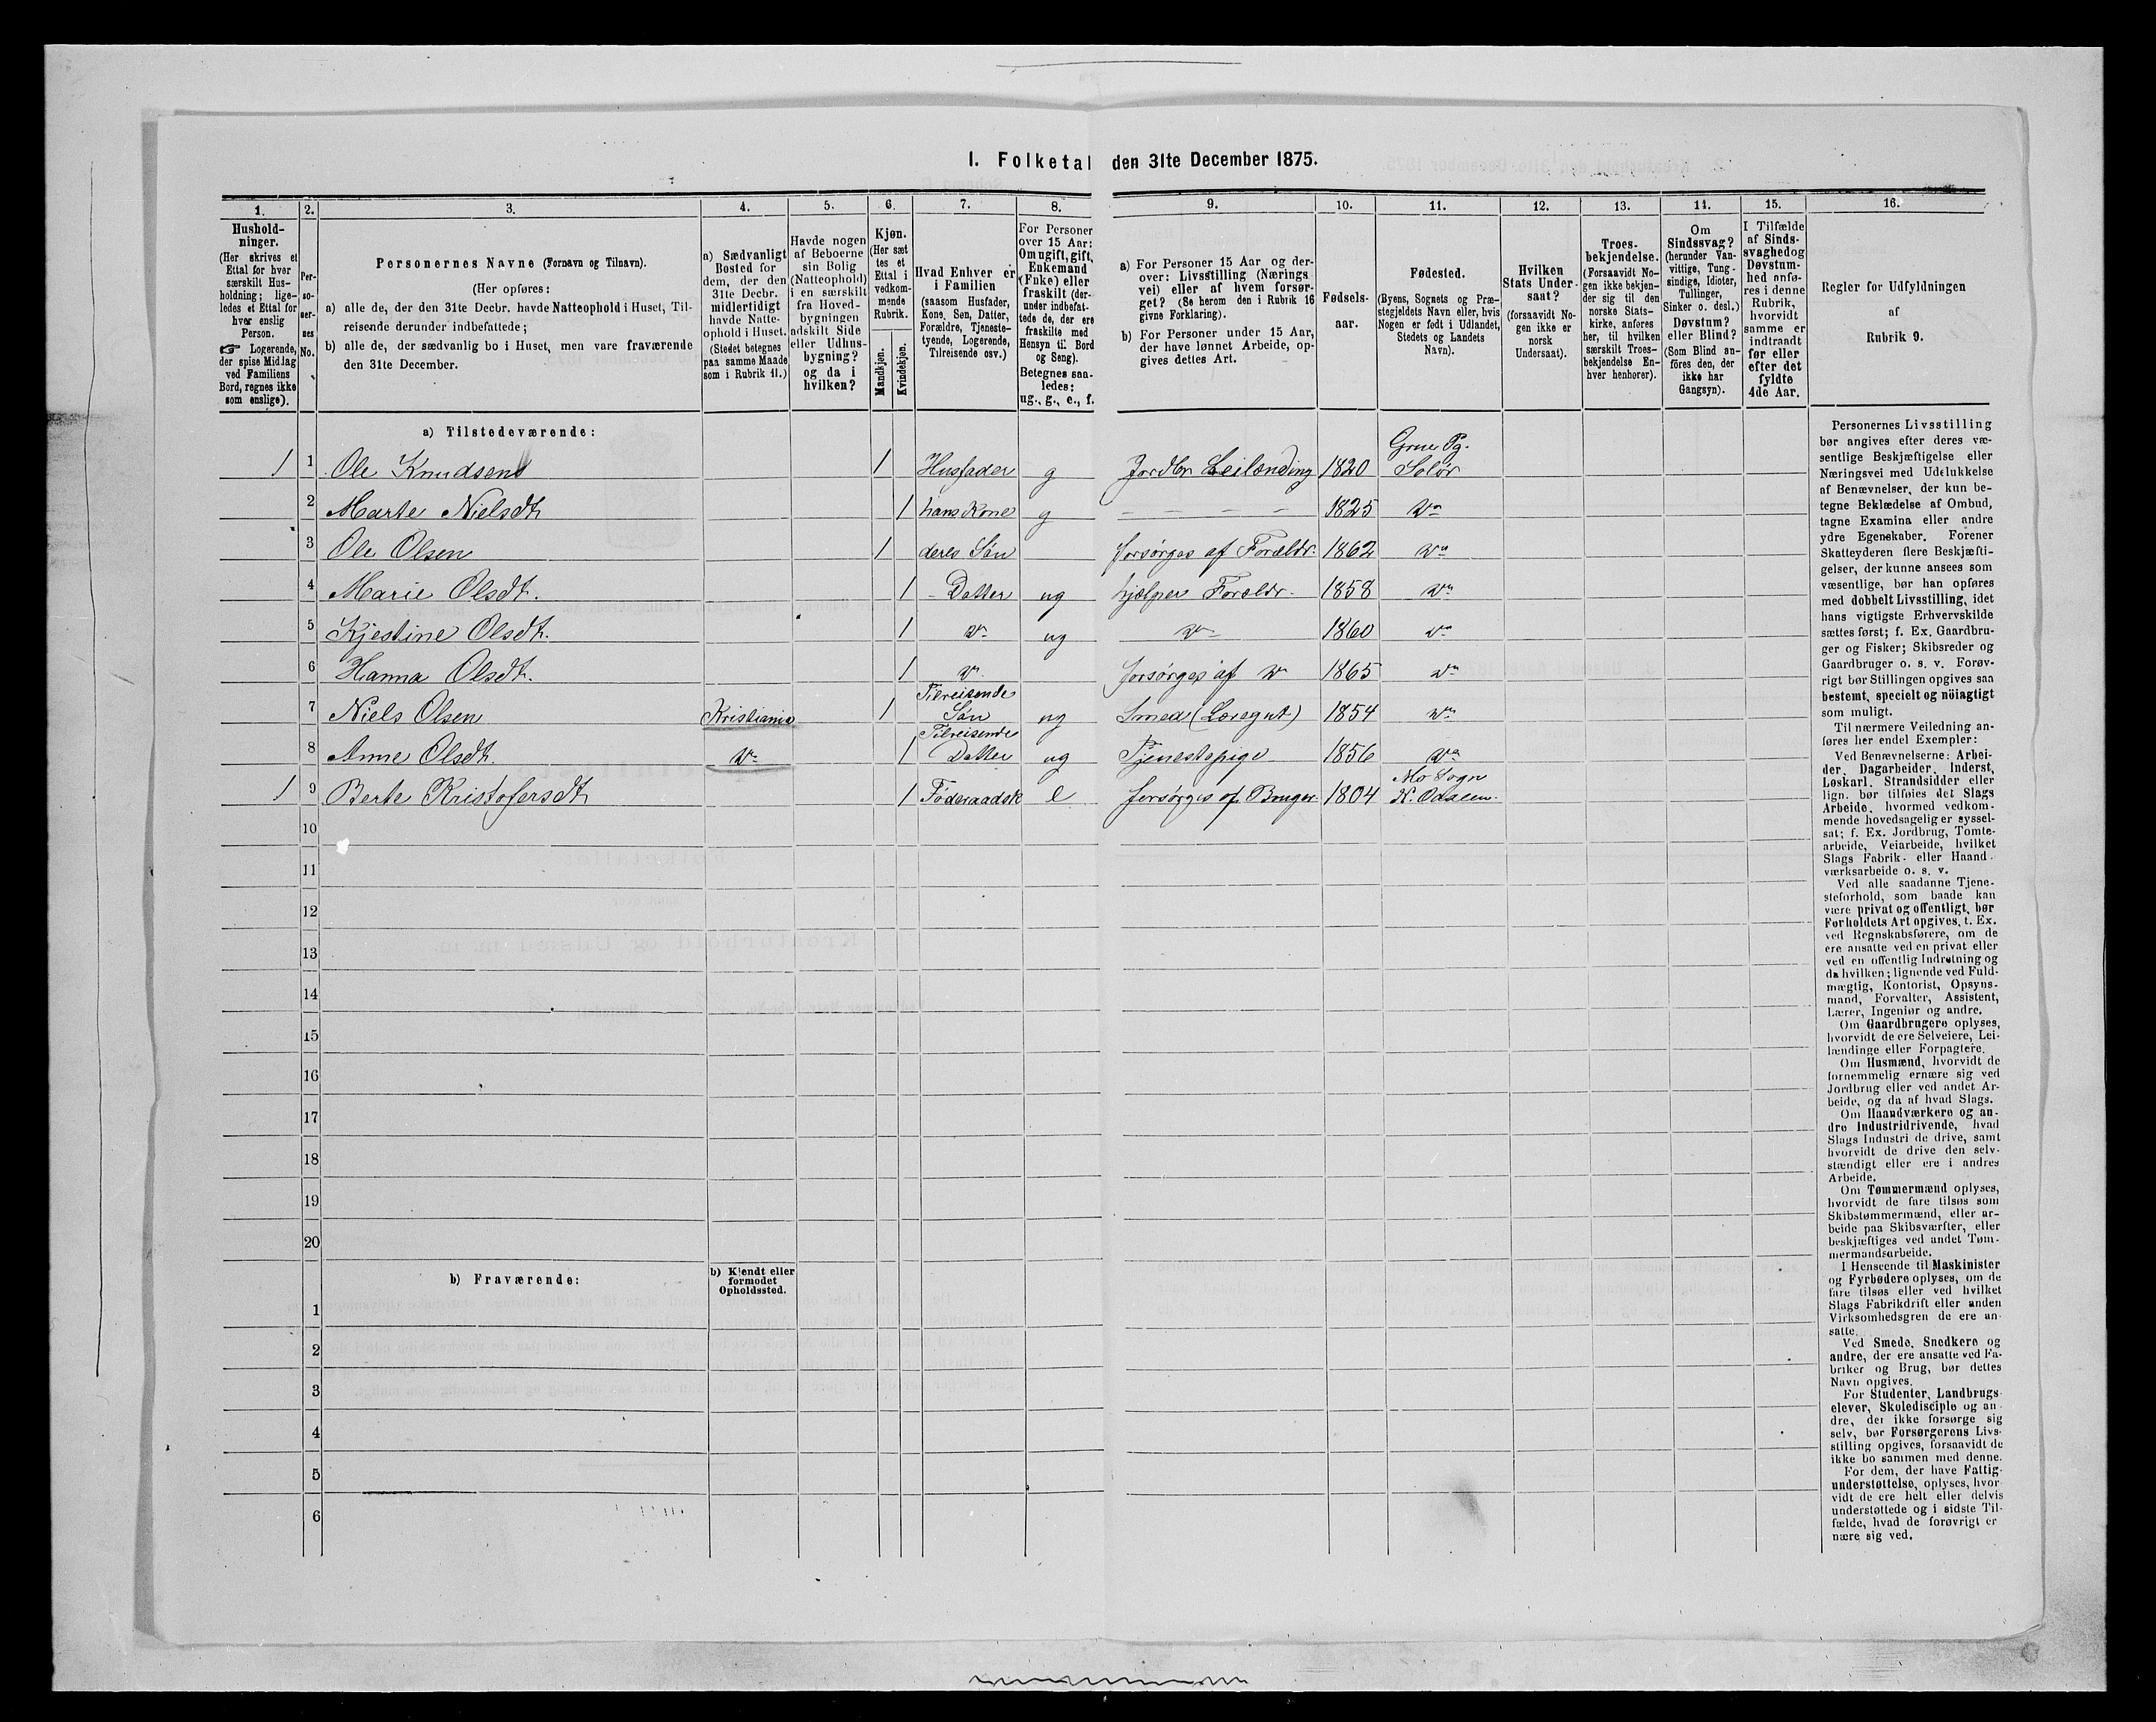 I. Folketal den 31te December 1875.
1. 2. 3. 4. 5. 6. 7. 8. 9. 10. 11. 12. 13. 14. 15. 16.
Hushold-
ninger.
(Her skrives et
Ettal for hver
særskilt Hus-
holdning; lige-
ledes et Ettal for
hver enslig
Person.
☞ Logerende,
der spise Middag
ved Familiens
Bord, regnes ikke
som enslige).
Per-
so-
ner-
nes
No.
Personernes Navne (Fornavn og Tilnavn).
(Her opføres:
a) alle de, der den 31te Decbr. havde Natteophold i Huset, Til-
reisende derunder indbefattede;
b) alle de, der sædvanlig bo i Huset, men vare fraværende
den 31te December.
a) Sædvanligt
Bosted for
dem, der den
31te Decbr.
midlertidigt
havde Natte-
ophold i Huset.
(Stedet betegnes
paa samme Maade
som i Rubrik 11.)
Havde nogen
af Beboerne
sin Bolig
(Natteophold)
i en særskilt
fra Hoved-
bygningen
adskilt Side
eller Udhus-
bygning?
og da i
hvilken?
Kjøn.
(Her sæt
tes et
Ettal i
vedkom-
mende
Rubrik.
Mandkjøn.
Kvindekjøn.
Hvad Enhver er
i Familien
(saasom Husfader,
Kone, Søn, Datter,
Forældre, Tjeneste-
tyende, Logerende,
Tilreisende osv.)
For Personer
over 15 Aar:
Om ugift, gift,
Enkemand
(Enke) eller
fraskilt (der-
under indbefat-
tede de, der ere
fraskilte med
Hensyn til Bord
og Seng).
Betegnes saa-
ledes:
ug., g., e., f.
a) For Personer 15 Aar og der-
over: Livsstilling (Nærings
vei) eller af hvem forsør-
get? (Se herom den i Rubrik 16
givne Forklaring).
b) For Personer under 15 Aar,
der have lønnet Arbeide, op-
gives dettes Art.
Fødsels-
aar.
Fødested.
(Byens, Sognets og Præ-
stegjeldets Navn eller, hvis
Nogen er født i Udlandet,
Stedets og Landets
Navn).
Hvilken
Stats Under-
saat?
(forsaavidt No-
gen ikke er
norsk
Undersaat).
Troes-
bekjendelse.
(Forsaavidt No-
gen ikke bekjen-
der sig til den
norske Stats-
kirke, anføres
her, til hvilken
særskilt Troes-
bekjendelse En-
hver henhører).
Om
Sindssvag?
(herunder Van-
vittige, Tung-
sindige, Idioter,
Tullinger,
Sinker o. desl.)
Døvstum?
eller Blind?
(Som Blind an-
føres den, der
ikke har
Gangsyn).
I Tilfælde
af Sinds-
svaghed og
Døvstum-
hed anfø-
res i denne
Rubrik,
hvorvidt
samme er
indtraadt
før eller
efter det
fyldte
4de Aar.
Regler for Udfyldningen
af
Rubrik 9.
a) Tilstedeværende:
1 1 Ole Knudsens 1 Husfader g Jordbr Leilænding 1820 Grue Pg. Solør
2 Marte Nielsdt 1 hans Kone g – – – – 1825 do
3 Ole Olsen 1 deres Søn forsørges af Forældr. 1862 do
4 Marie Olsdt. 1 – Datter ug hjælper Forældr. 1858 do
5 Kjestine Olsdt. 1 do ug do 1860 do
6 Hanna Olsdt. 1 do forsørges af do 1865 do
7 Niels Olsen Kristiania 1 Tilreisende Søn ug Smed (Læregut) 1854 do
8 Anne Olsdt. do 1 Tilreisende Datter ug Tjenestepige 1856 do
1 9 Berte Kristofersdt 1 Føderaadsk e forsørges af Bruger. 1804 Mo Sogn N. Odalen.
10
11
12
13
14
15
16
17
18
19
20
b) Fraværende:
b) Kjendt eller
formodet
Opholdssted.
1
2
3
4
5
6
Personernes Livsstilling
bør angives efter deres væ-
sentlige Beskjæftigelse eller
Næringsvei med Udelukkelse
af Benævnelser, der kun be-
tegne Beklædelse af Ombud,
tagne Examina eller andre
ydre Egenskaber. Forener
Skatteyderen flere Beskjæfti-
gelser, der kunne ansees som
væsentlige, bør han opføres
med dobbelt Livsstilling, idet
hans vigtigste Erhvervskilde
sættes først; f. Ex. Gaardbru-
ger og Fisker; Skibsreder og
Gaardbruger o. s. v. Forøv-
rigt bør Stillingen opgives saa
bestemt, specielt og nöiagtigt
som muligt.
Til nærmere Veiledning an-
føres her endel Exempler:
Ved Benævnelserne: Arbei-
der, Dagarbeider, Inderst,
Løskarl, Strandsidder eller
lign. bør tilføies det Slags
Arbeide, hvormed vedkom-
mende hovedsagelig er syssel-
sat; f. Ex. Jordbrug, Tomte-
arbeide, Veiarbeide, hvilket
Slags Fabrik- eller Haand-
værksarbeide o. s. v.
Ved alle saadanne Tjene-
steforhold, som baade kan
være privat og offentligt, bør
Forholdets Art opgives, t. Ex.
ved Regnskabsførere, om de
ere ansatte ved en privat eller
ved en offentlig Indretning og
da hvilken; lignende ved Fuld-
mægtig, Kontorist, Opsyns-
mand, Forvalter, Assistent,
Lærer, Ingeniør og andre.
Om Gaardbrugere oplyses,
hvorvidt de ere Selveiere, Lei-
lændinge eller Forpagtere.
Om Husmænd, hvorvidt de
fornemmelig ernære sig ved
Jordbrug eller ved andet Ar-
beide, og da af hvad Slags.
Om Haandværkere og an-
dre Industridrivende, hvad
Slags Industri de drive, samt
hvorvidt de drive den selv-
stændigt eller ere i andres
Arbeide.
Om Tømmermænd oplyses,
hvorvidt de fare tilsøs som
Skibstømmermænd, eller ar-
beide paa Skibsværfter, eller
beskjæftiges ved andet Tøm-
mermandsarbeide.
I Henseende til Maskinister
og Fyrbødere oplyses, om de
fare tilsøs eller ved hvilket
Slags Fabrikdrift eller anden
Virksomhedsgren de ere an-
satte.
Ved Smede, Snedkere og
andre, der ere ansatte ved Fa-
briker og Brug, bør dettes
Navn opgives.
For Studenter, Landbrugs-
elever, Skoledisciple og an-
dre, der ikke forsørge sig
selv, bør Forsørgerens Livs-
stilling opgives, forsaavidt de
ikke bo sammen med denne.
For dem, der have Fattig-
understøttelse, oplyses, hvor-
vidt de ere helt eller delvis
understøttede og i sidste Til-
fælde, hvad de forøvrigt er
nære sig ved.